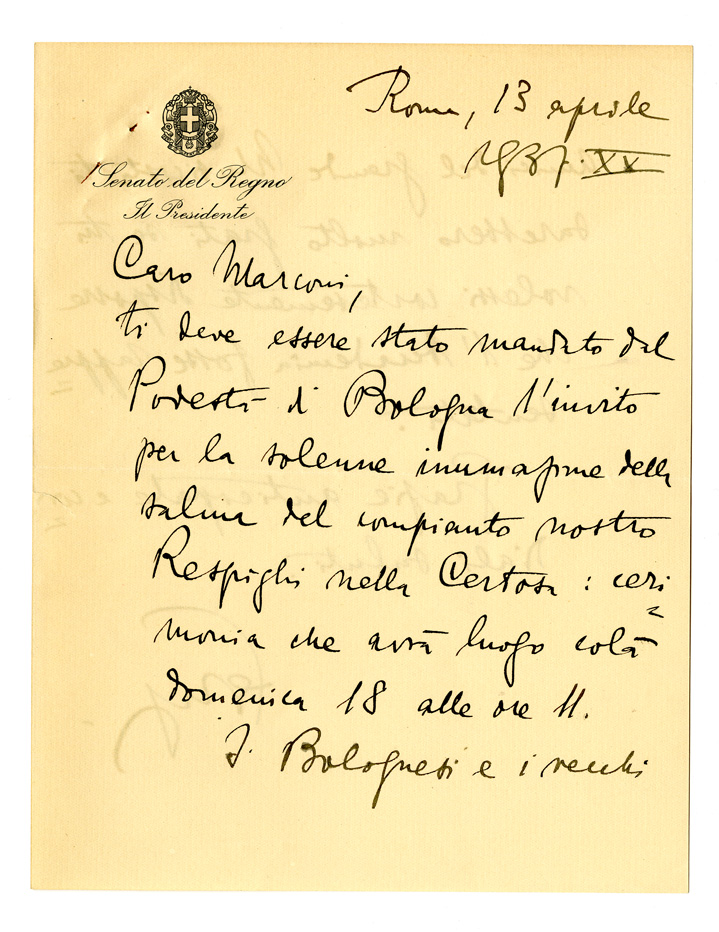 Senato del Regno
Il Presidente
Roma, 13 aprile
1937. XV
Caro Marconi,
ti deve essere stato mandato dal
Podestà di Bologna l'invito
per la solenne inumazione della
salma del compianto nostro
Respighi nella Certosa: ceri=
monia che avrà luogo colà
domenica 18 alle ore 11.
I Bolognesi e i vecchi